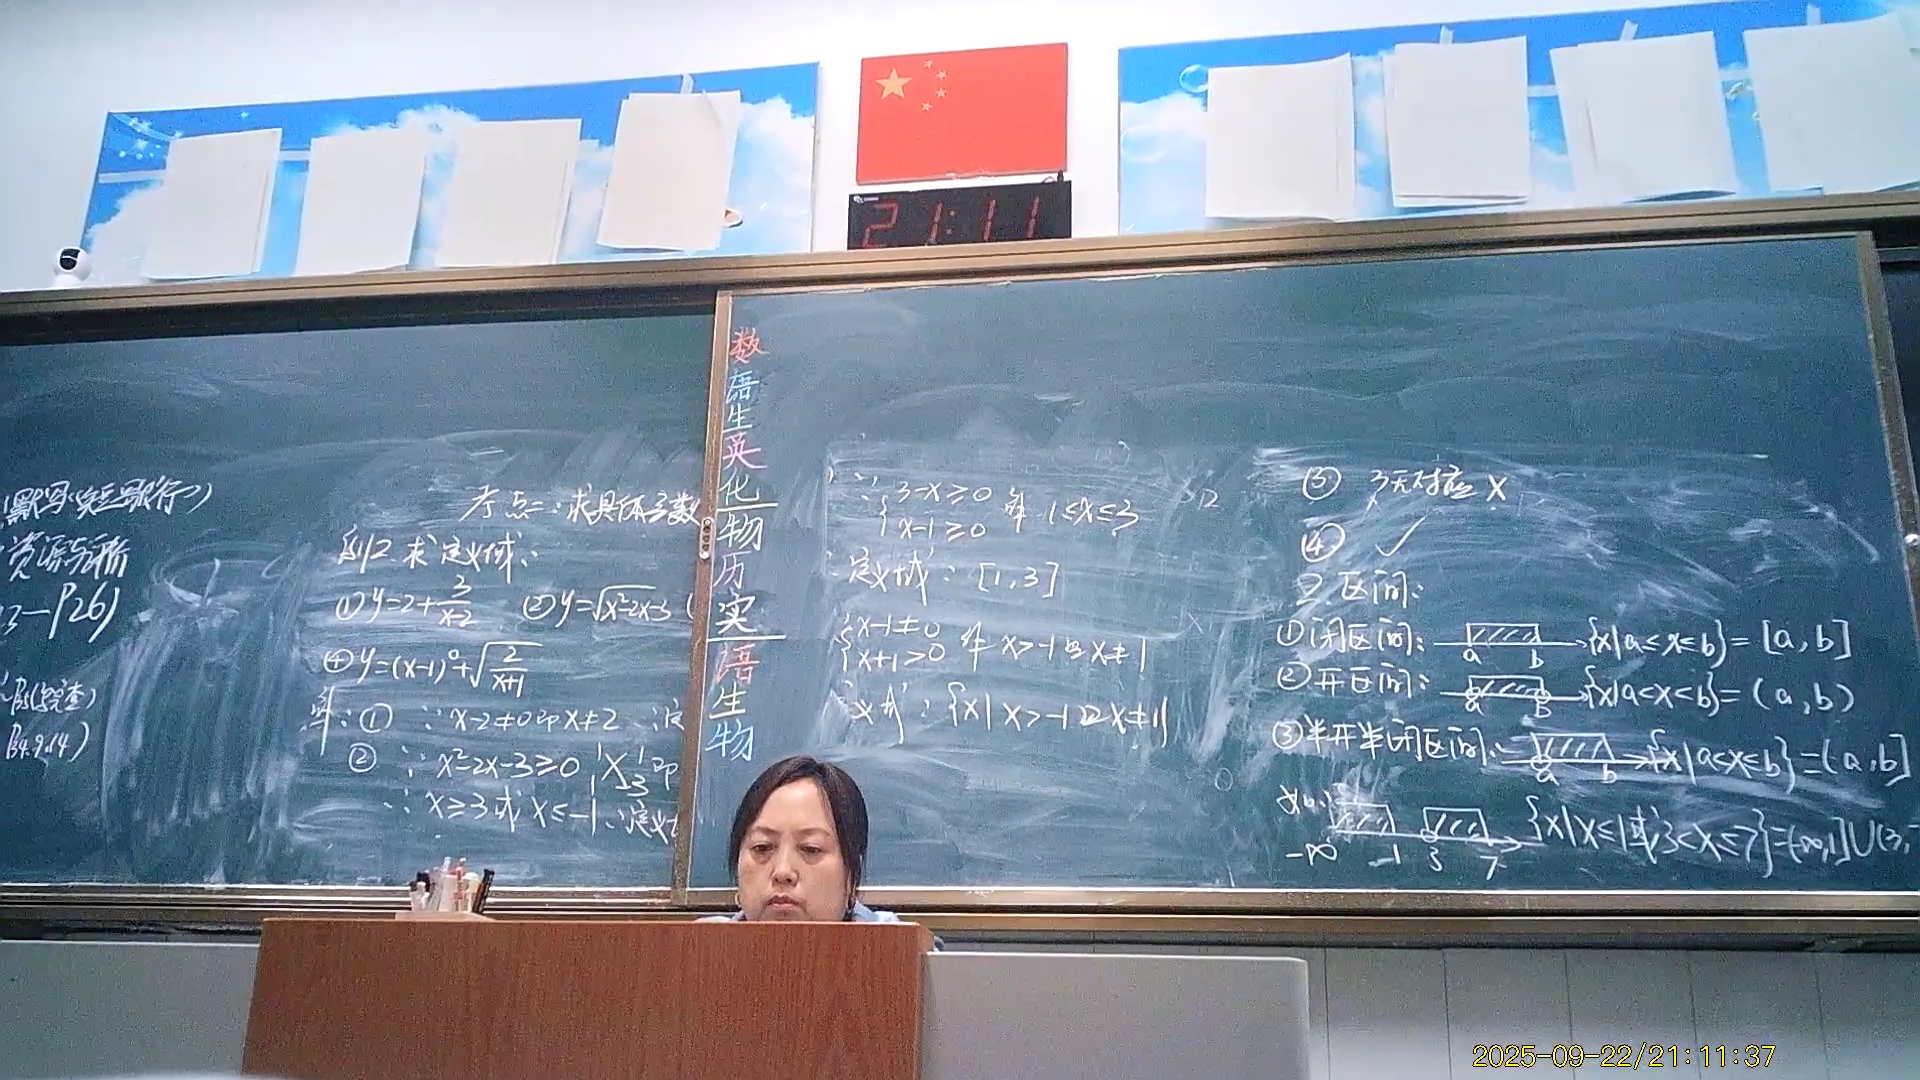 21:11
资源与
3—P26)
P4.9.14)
考点二:求具体函数
例2 求定义域:
① y=2+3/(x-2) ② y=√(x²-2x-3)
④ y=(x-1)⁰+√(2/(x+1))
解:① ∵x-2≠0即x≠2
② ∵x²-2x-3≥0 即
∴x≥3或x≤-1 ∴定义
数
语
生
英
化
物
历
实
语
生
物
∵{3-x≥0 解 1≤x≤3
x-1≥0
定义域:[1,3]
{x-1≠0
x+1>0 解 x>-1且x≠1
义域:{x|x>-1且x≠1}
③ 3无对应 ×
④ ✓
2.区间:
①闭区间: a b {x|a≤x≤b}=[a,b]
②开区间: a b {x|a<x<b}=(a,b)
③半开半闭区间: a b {x|a<x≤b}=(a,b]
如:
-∞ -1 3 7 {x|x≤1或3<x≤7}=(-∞,1]∪(3,
2025-09-22/21:11:37